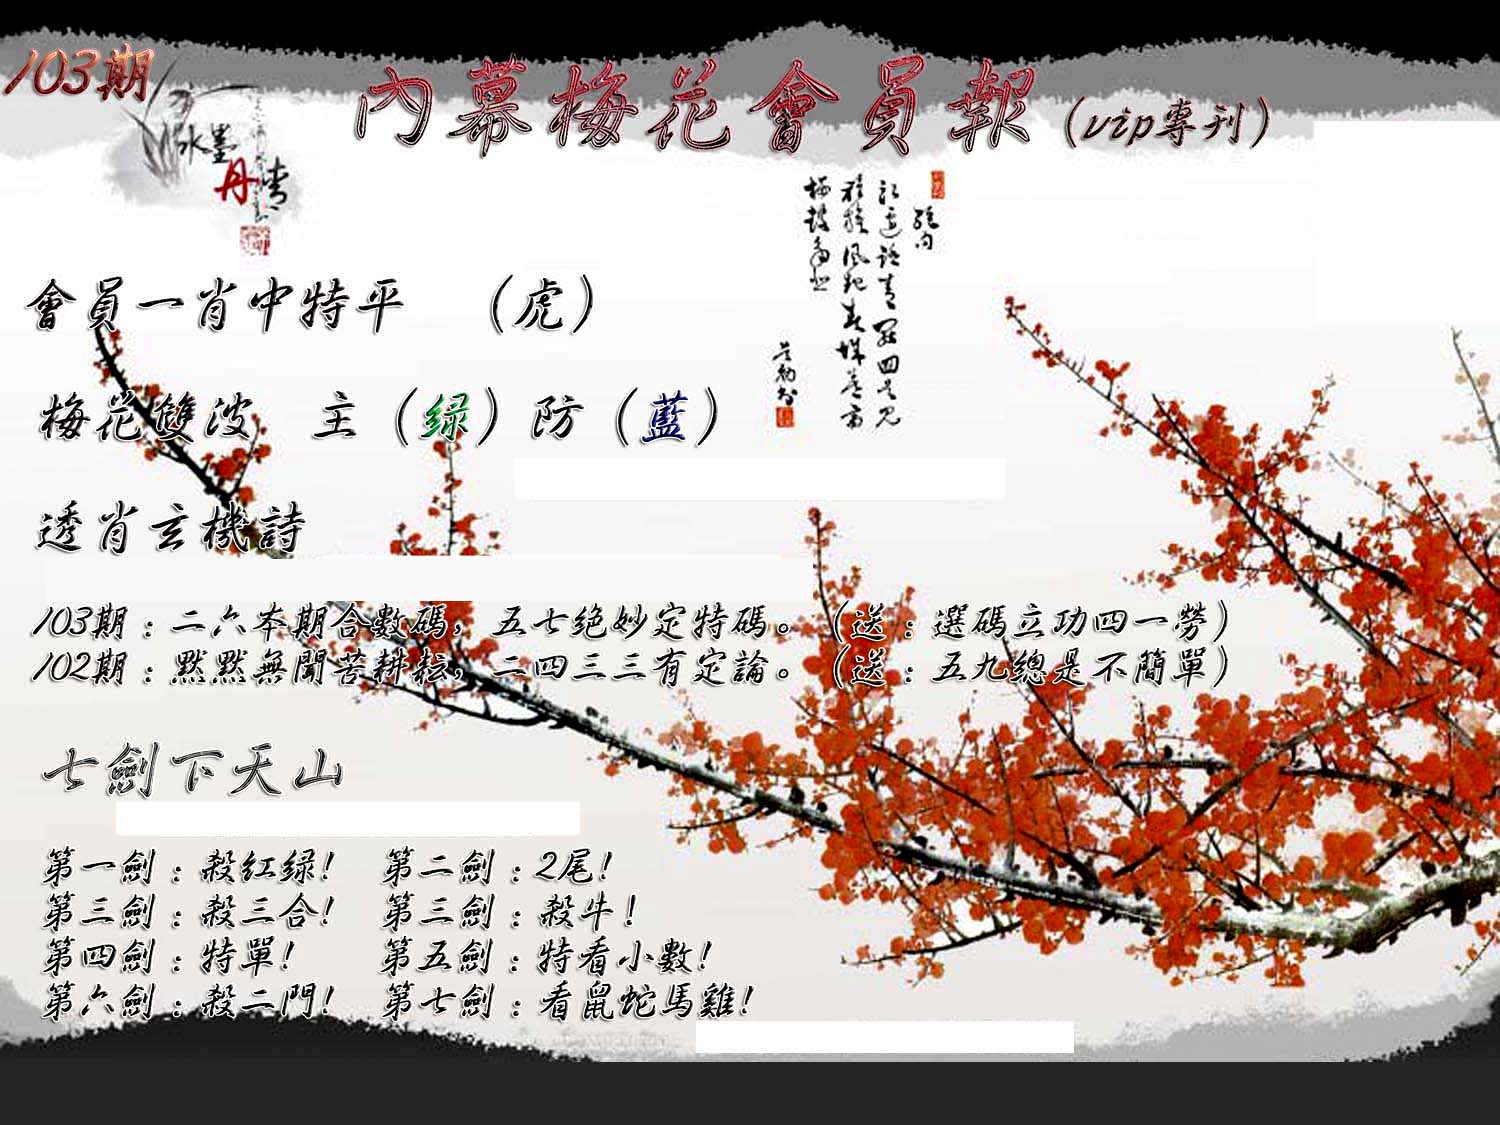 103期
內幕梅花會員報(vip專刊)
水墨
丹青
絕句
會員一肖中特平 (虎)
梅花雙波 主(绿)防(藍)
透肖玄機詩
103期:二六本期合數碼,五七绝妙定特碼。(送:選碼立功四一勞)
102期:默默無聞苦耕耘,二四三三有定論。(送:五九總是不簡單)
七劍下天山
第一劍:殺紅绿! 第二劍:2尾!
第三劍:殺三合! 第三劍:殺牛!
第四劍:特單! 第五劍:特看小數!
第六劍:殺二門! 第七劍:看鼠蛇馬雞!